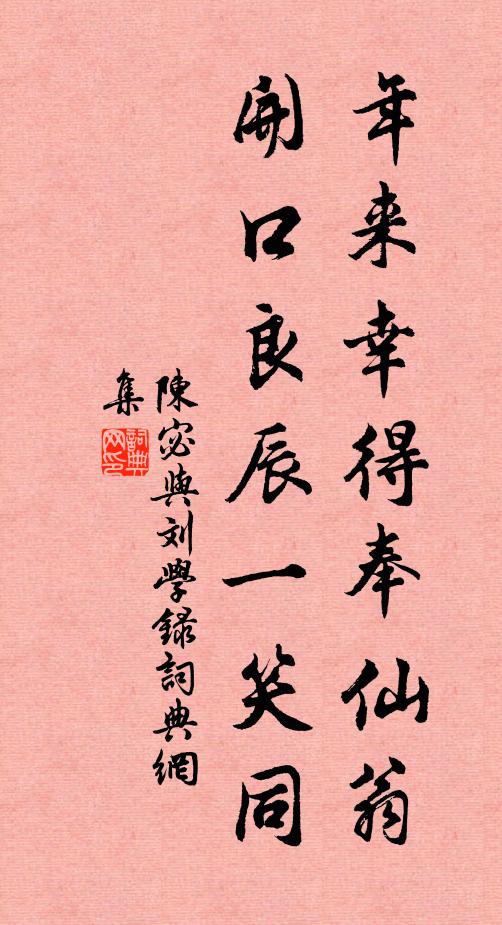 年来幸得奉仙翁
開口良辰一笑同
陳宓與刘學録詞典網
集
詞典网印